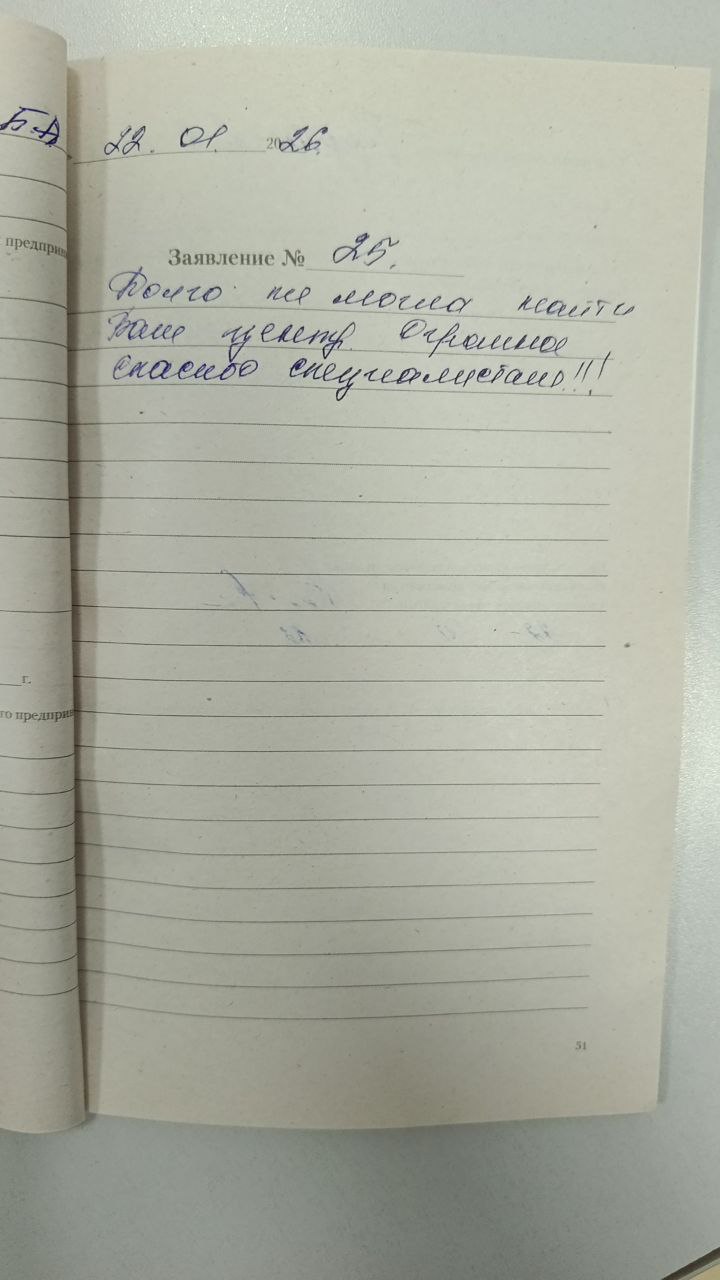 Б.А.
22. 01. 2026.
предприн
Заявление № 25.
Долго не могла найти
Ваш центр. Огромное
спасибо специалистам!!!
г.
го предприн
51